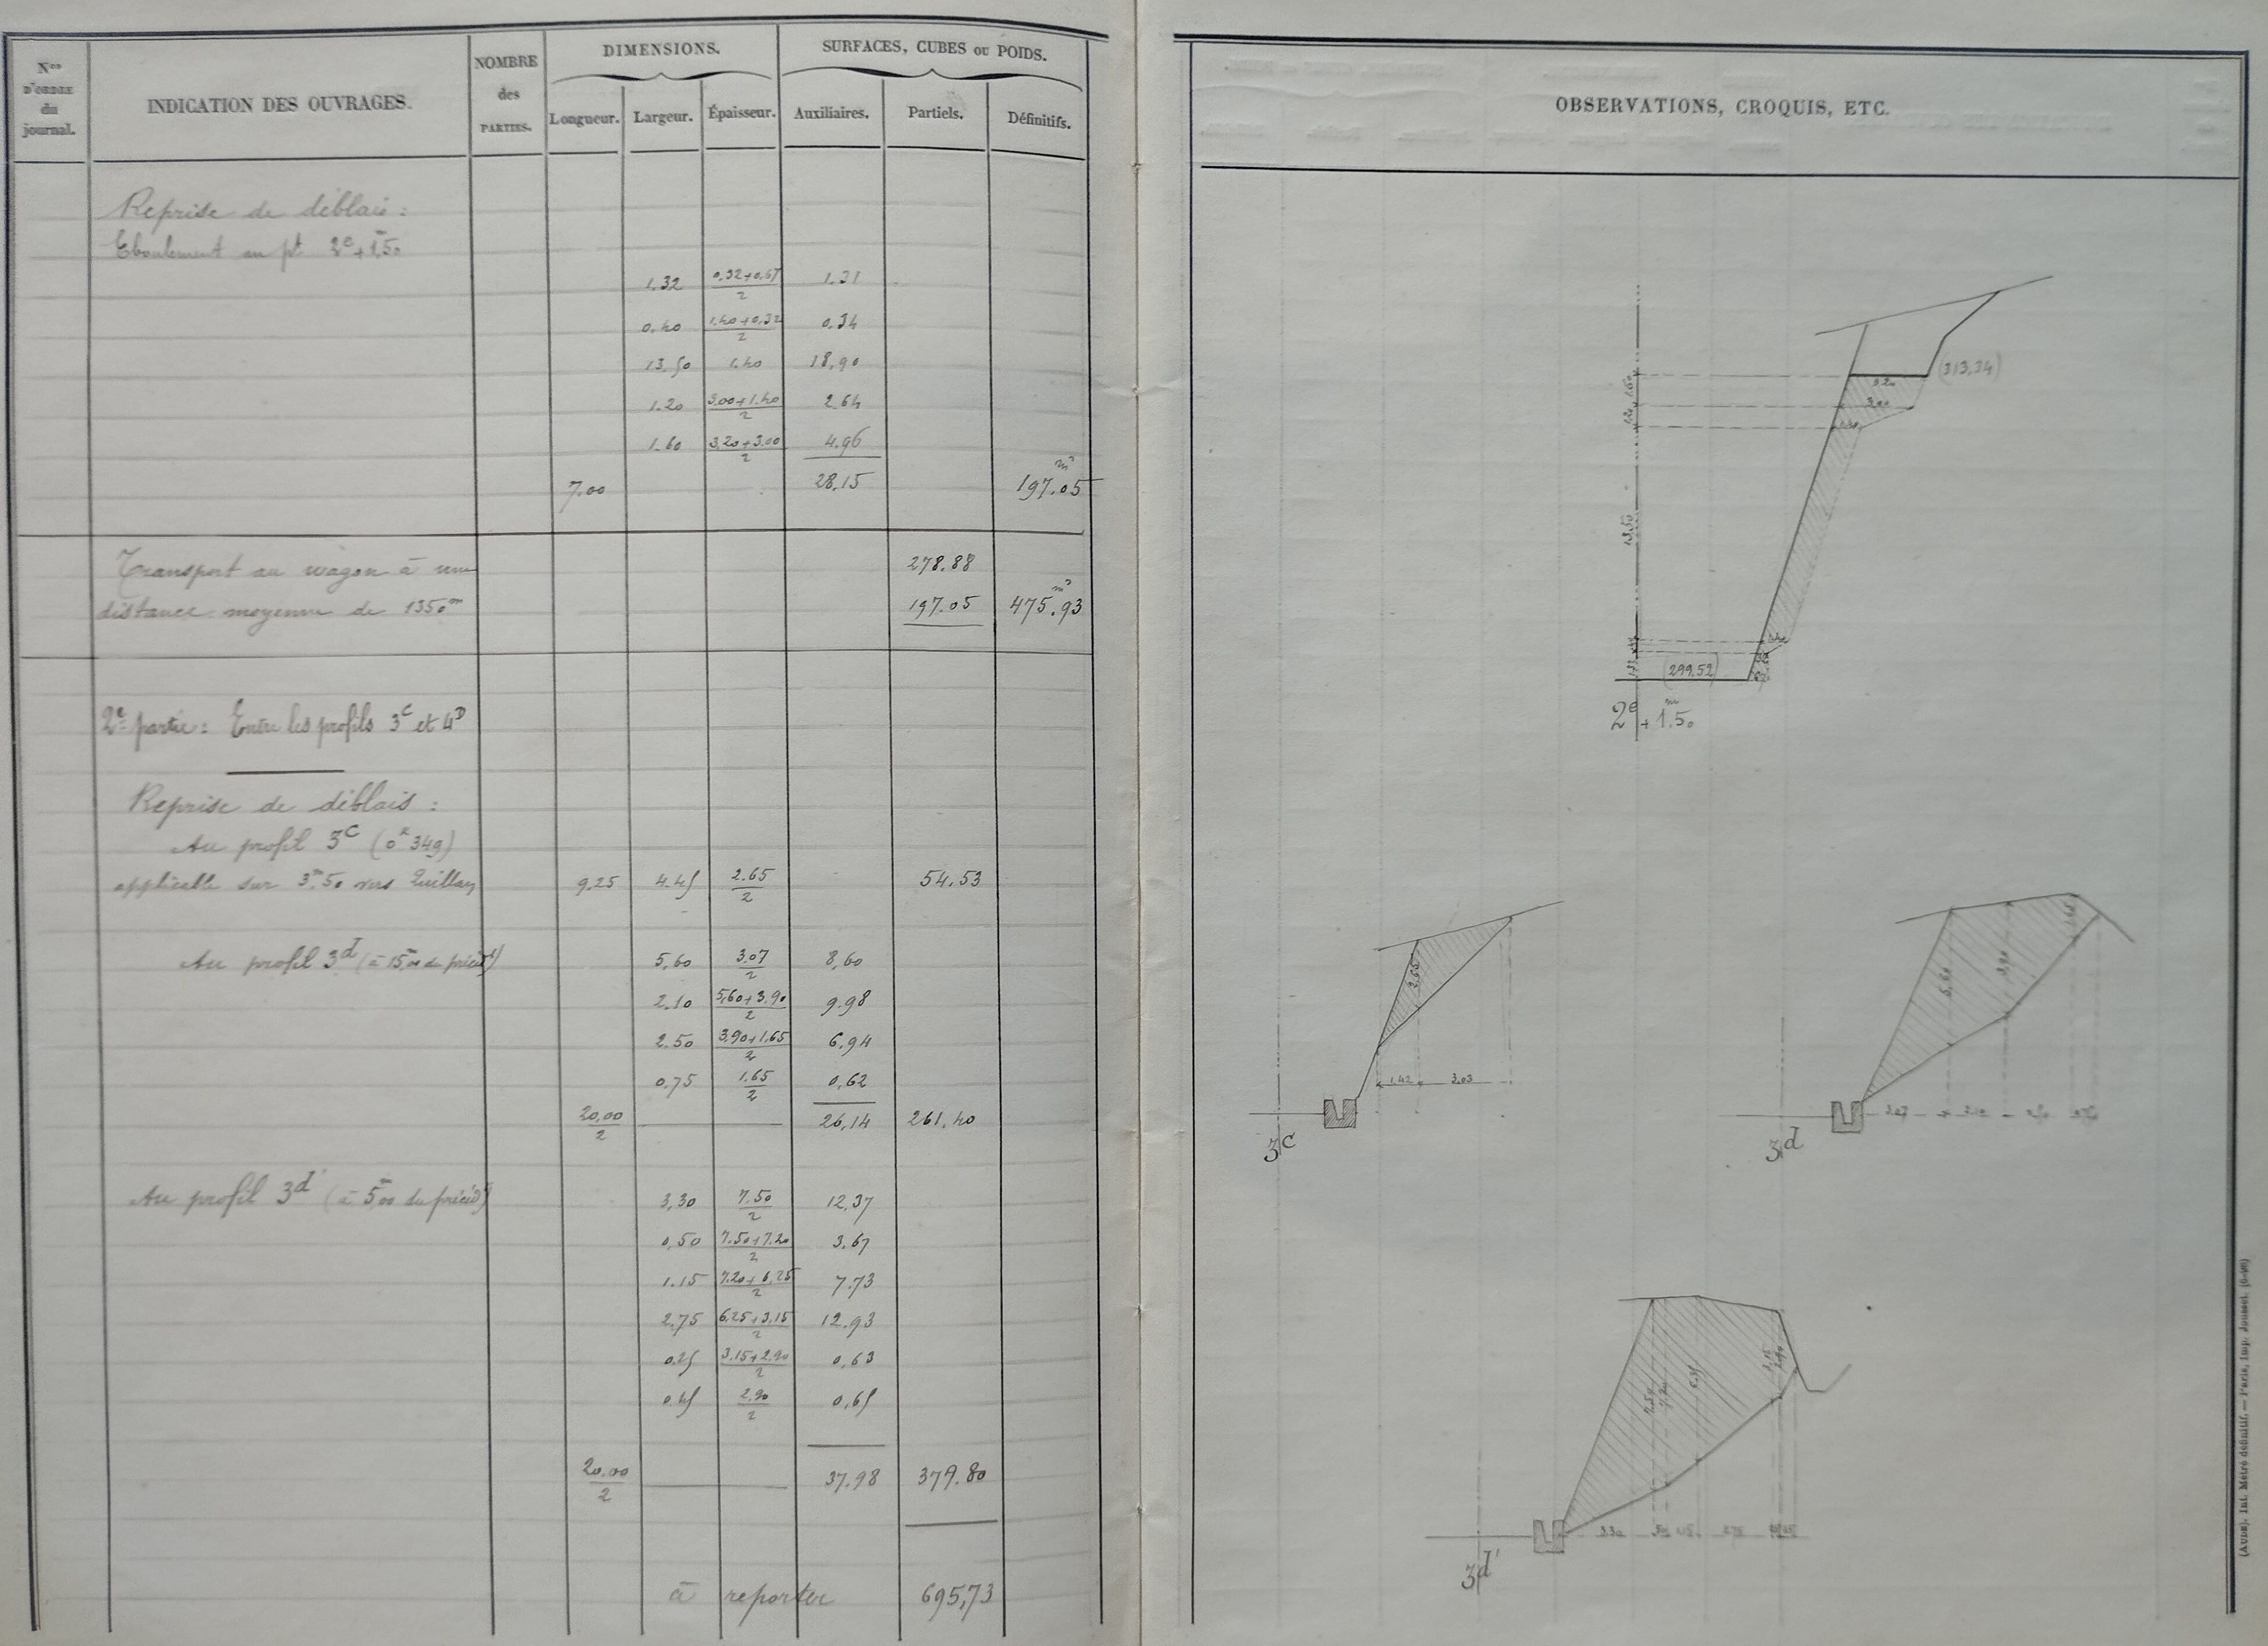 Nos
D'ORDRE
du
journal.
INDICATION DES OUVRAGES.
NOMBRE
des
PARTIES.
DIMENSIONS.
Longueur. Largeur. Épaisseur.
SURFACES, CUBES OU POIDS.
Auxiliaires. Partiels. Définitifs.
Reprise de déblais :
Eboulement au pt 2e + 1m,50
1.32 (0,32+0,67)/2 1.31
0.40 (1.40+0,32)/2 0.34
13.50 1.40 18,90
1.20 (3.00+1.40)/2 2.64
1.60 (3,20+3.00)/2 4.96
7.00 28,15 197.05 m3
Transport au wagon à une 278.88
distance moyenne de 1350m 197.05 475.93 m3
2e partie : Entre les profils 3C et 4D
Reprise de déblais :
Au profil 3C (0K349)
applicable sur 3m,50 vers Quillan 9.25 4.45 2.65/2 54.53
Au profil 3d (à 15m,00 du précédt) 5,60 3.07/2 8,60
2.10 (5,60+3.90)/2 9.98
2.50 (3.90+1.65)/2 6,94
0,75 1.65/2 0,62
20,00/2 26,14 261,40
Au profil 3d' (à 5m,00 du précédt) 3,30 7.50/2 12,37
0,50 (7.50+7.20)/2 3,67
1.15 (7.20+6,25)/2 7.73
2.75 (6.25+3,15)/2 12.93
0.25 (3.15+2.90)/2 0,63
0.45 2.90/2 0,65
20,00/2 37.98 379.80
à reporter 695,73
OBSERVATIONS, CROQUIS, ETC.
(313,34)
1.60
3.20
1.20
3,00
1.40
13.50
1.40
(299.52)
2e + 1m.50
2,65
1.42 3.03
3C
5,60
3,90
1.65
3.07 2.10 2.50 0.75
3d
7.50
7.20
6.25
3.15
2.90
3.30 .50 1.15 2.75
3d'
(AUDE). Int. Métré définitif. — Paris, Imp. Jousset.